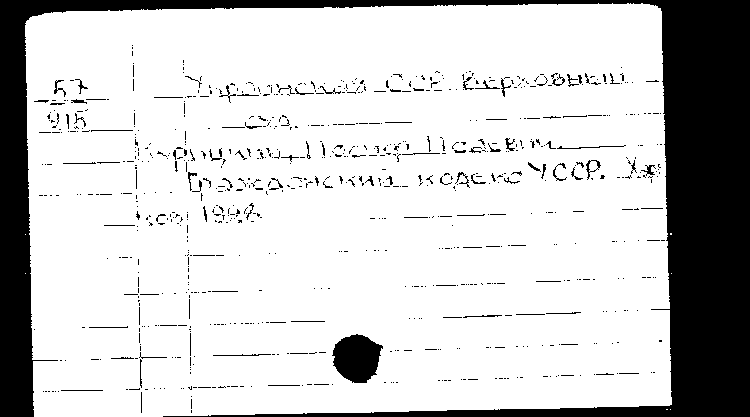 57
915
Украинская ССР. Верховный
суд.
Курицкий, Иосиф Исаевич.
Гражданский кодекс УССР. Харь
ков 1928.